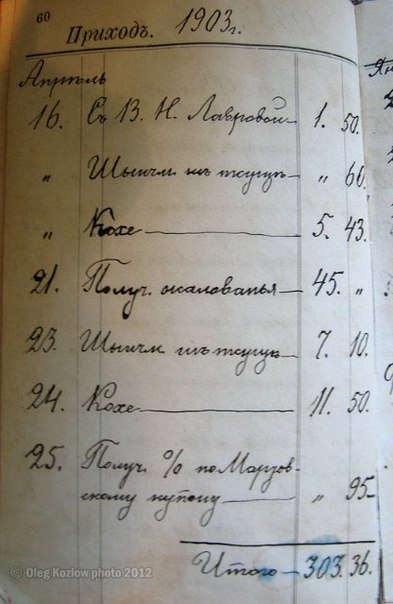 60
Приходъ. 1903 г.
Апрѣль
16. Съ В. Н. Лавровой 1. 50.
" " 60.
" Кохе 5. 43.
21. Получ. жалованья 45. "
23. 7. 10.
24. Кохе 11. 50.
25. Получ. % по Марзов-
скому купону " 95
Итого 303. 36.
© Oleg Kozlow photo 2012